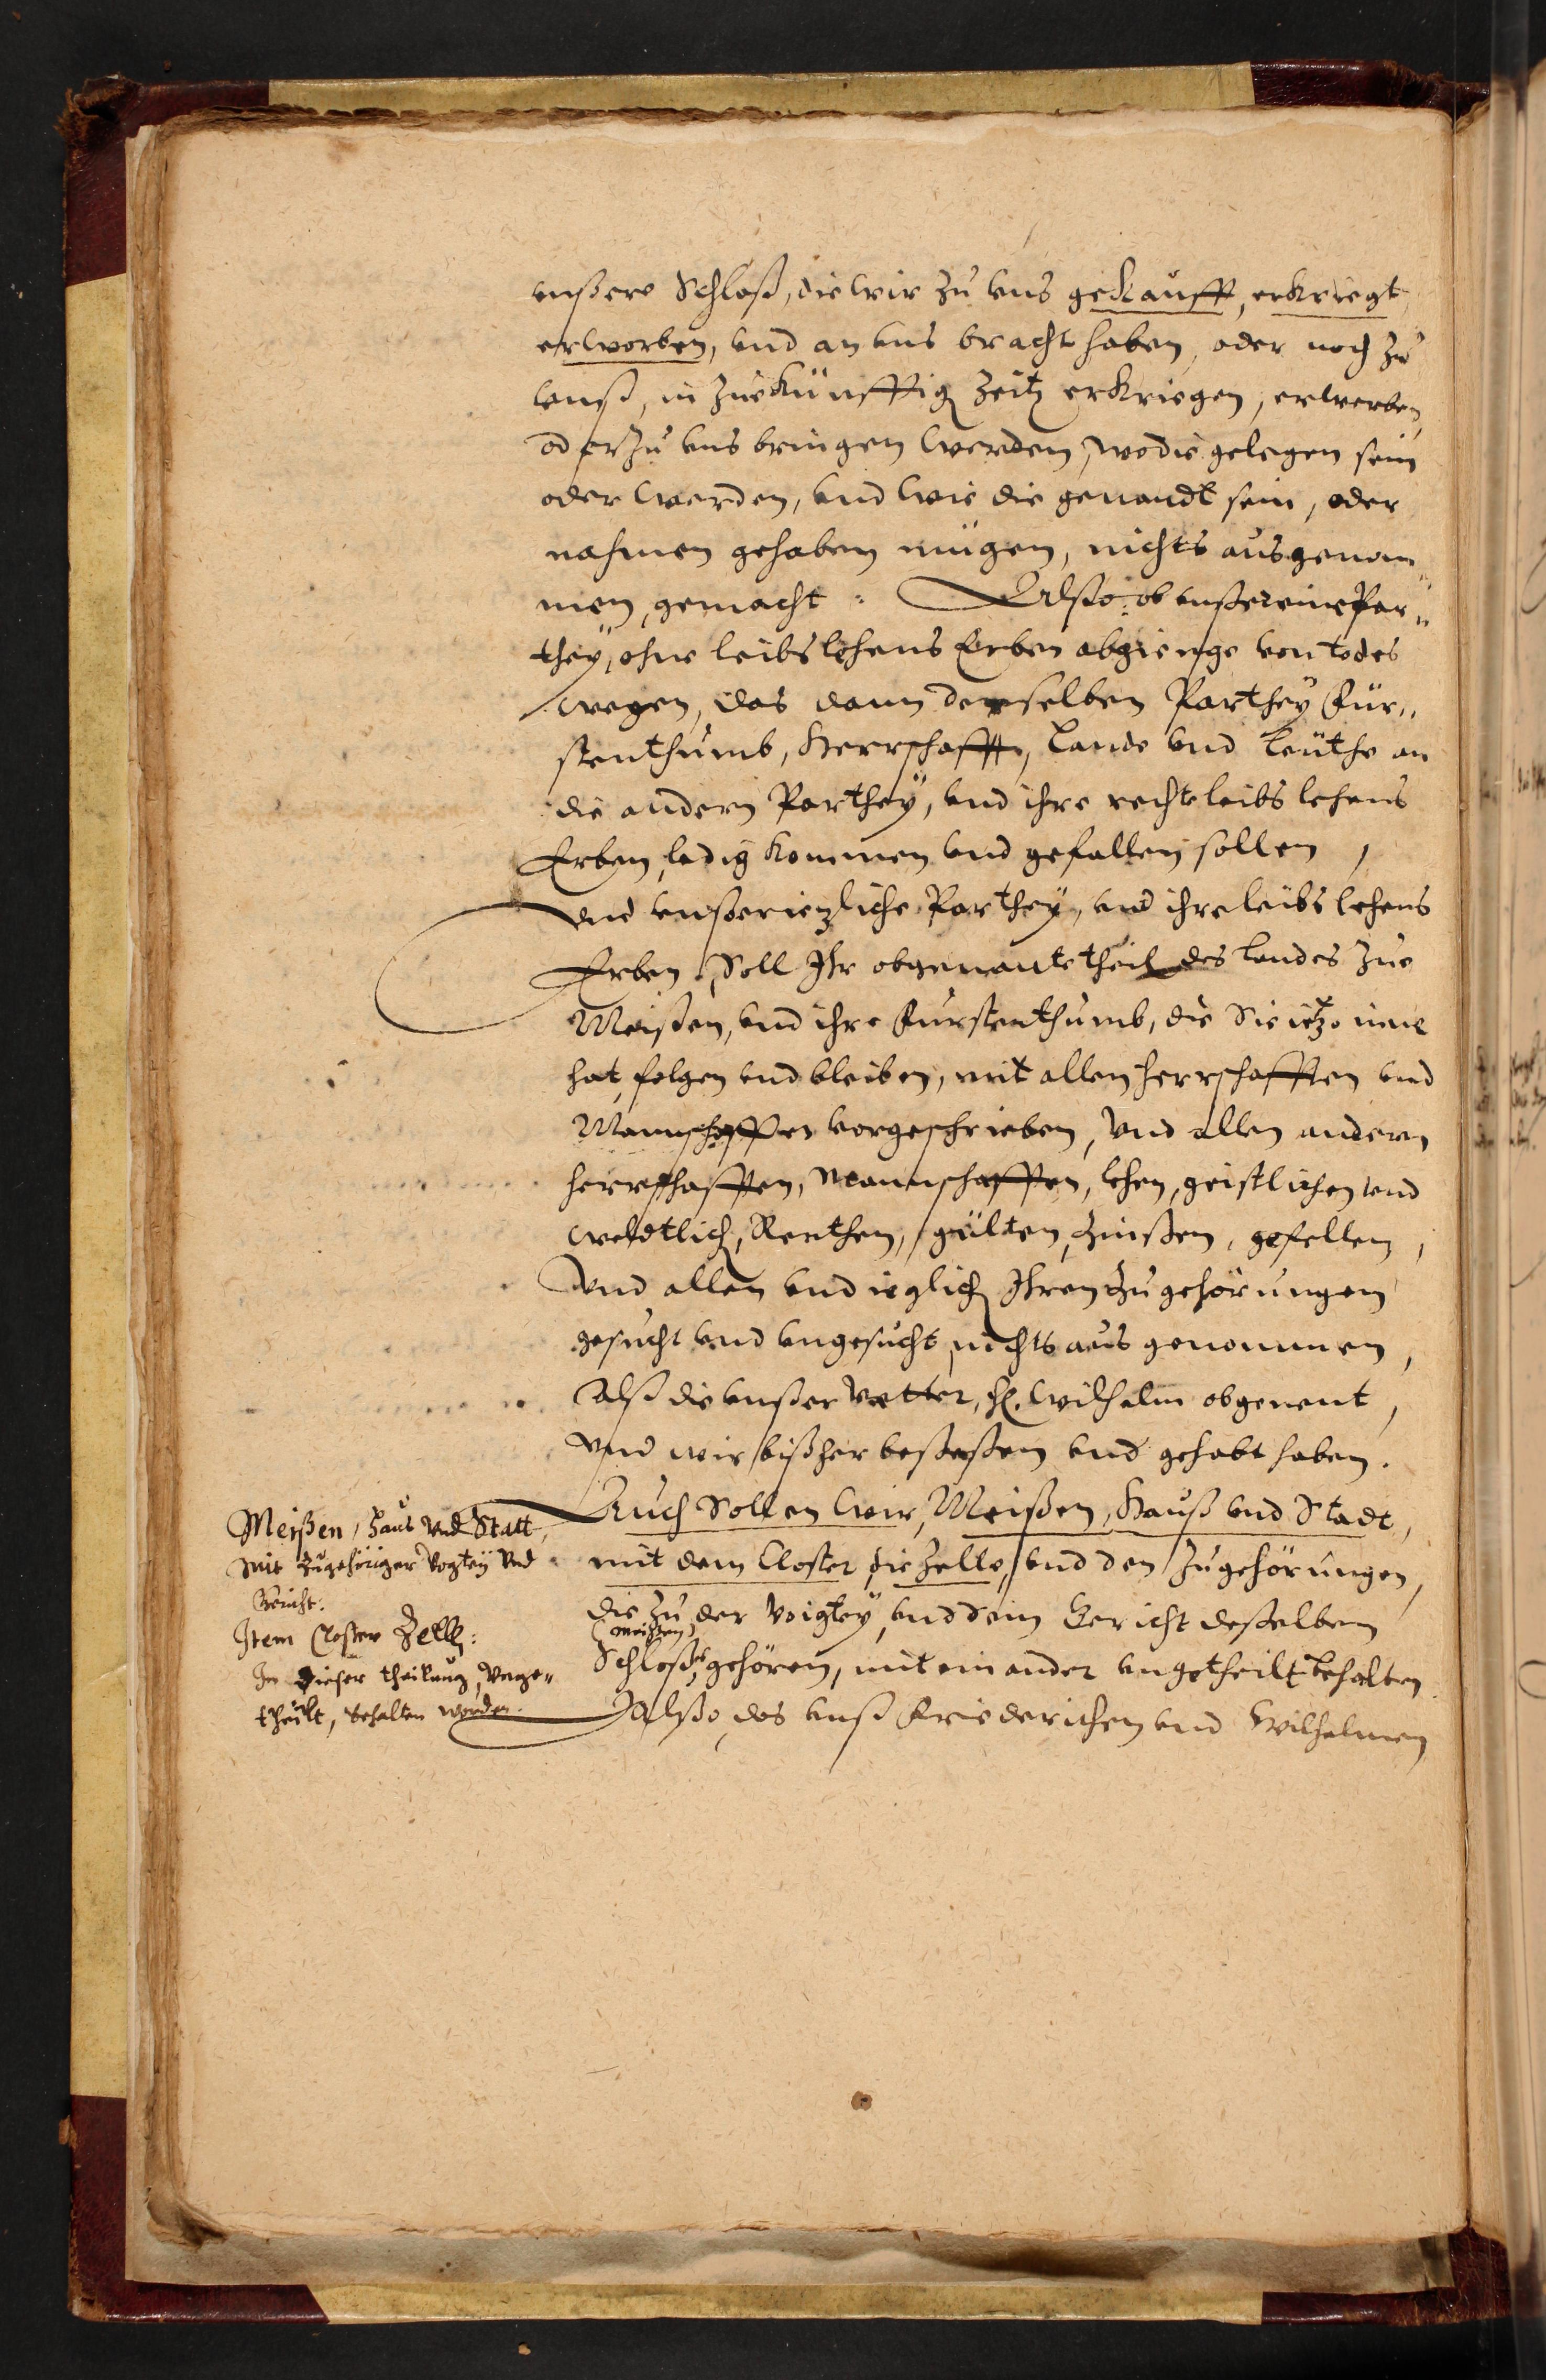 unßere Schloß, die wir zu uns gekaufft, erkriegt
erworben, und an uns bracht haben, oder noch zu
unß, in zuekünfftig Zeitz erkriegen, erwerben
oder zu uns bringen werden, wo die gelegen sein
oder werden, und wie die genandt sein, oder
nahmen gehaben mügen, nichts ausgenom„
men, gemacht: Also: ob unßer eine Par„
they, ohne leibs lehens Erben abgienge von todes
wegen, das dann derselben Parthey Für„
stenthumb, Herrschafft, Lande und Leuthe an
die andern Parthey, und ihre rechte leibs lehens
Erben, ledig kommen und gefallen sollen,
und unßer iezliche Parthey, und ihre leibs lehens
Erben, Soll Ihr obgenante theil des Landes zue
Meißen, und ihre Furstenthumb, die Sie itzo inne
hat, folgen und bleiben, mit allen herrschafften und
Mannschafften vorgeschrieben, Und allen andern
herrschafften, Mannschafften, lehen, geistlichen und
weldtlich, Renthen, gülten, Zinßen, gefellen,
Und allen und ieglich Ihren Zugehörungen
gesucht und ungesucht, nichts aus genommen,
Alß die unßer Vetter, H. Wilhelm obgenent,
Und wir bißher beseßen und gehabt haben.
Auch Sollen wir, Meißen, Hauß und Stadt,
mit dem Closter die Zelle, und den Zugehörungen,
die zu der Voigtey, und dem Gericht deßelben
(Meißen)
Schloßes gehören, mit einander ungetheilt behalten
Alßo, das unß Friederichen und Wilhelmen
Meißen, Haus Und Statt,
Mit Zugehöriger Vogtey Und
Gericht.
Item Closter Zell:
In Dieser theilung, Unge„
theilt, behalten worden.